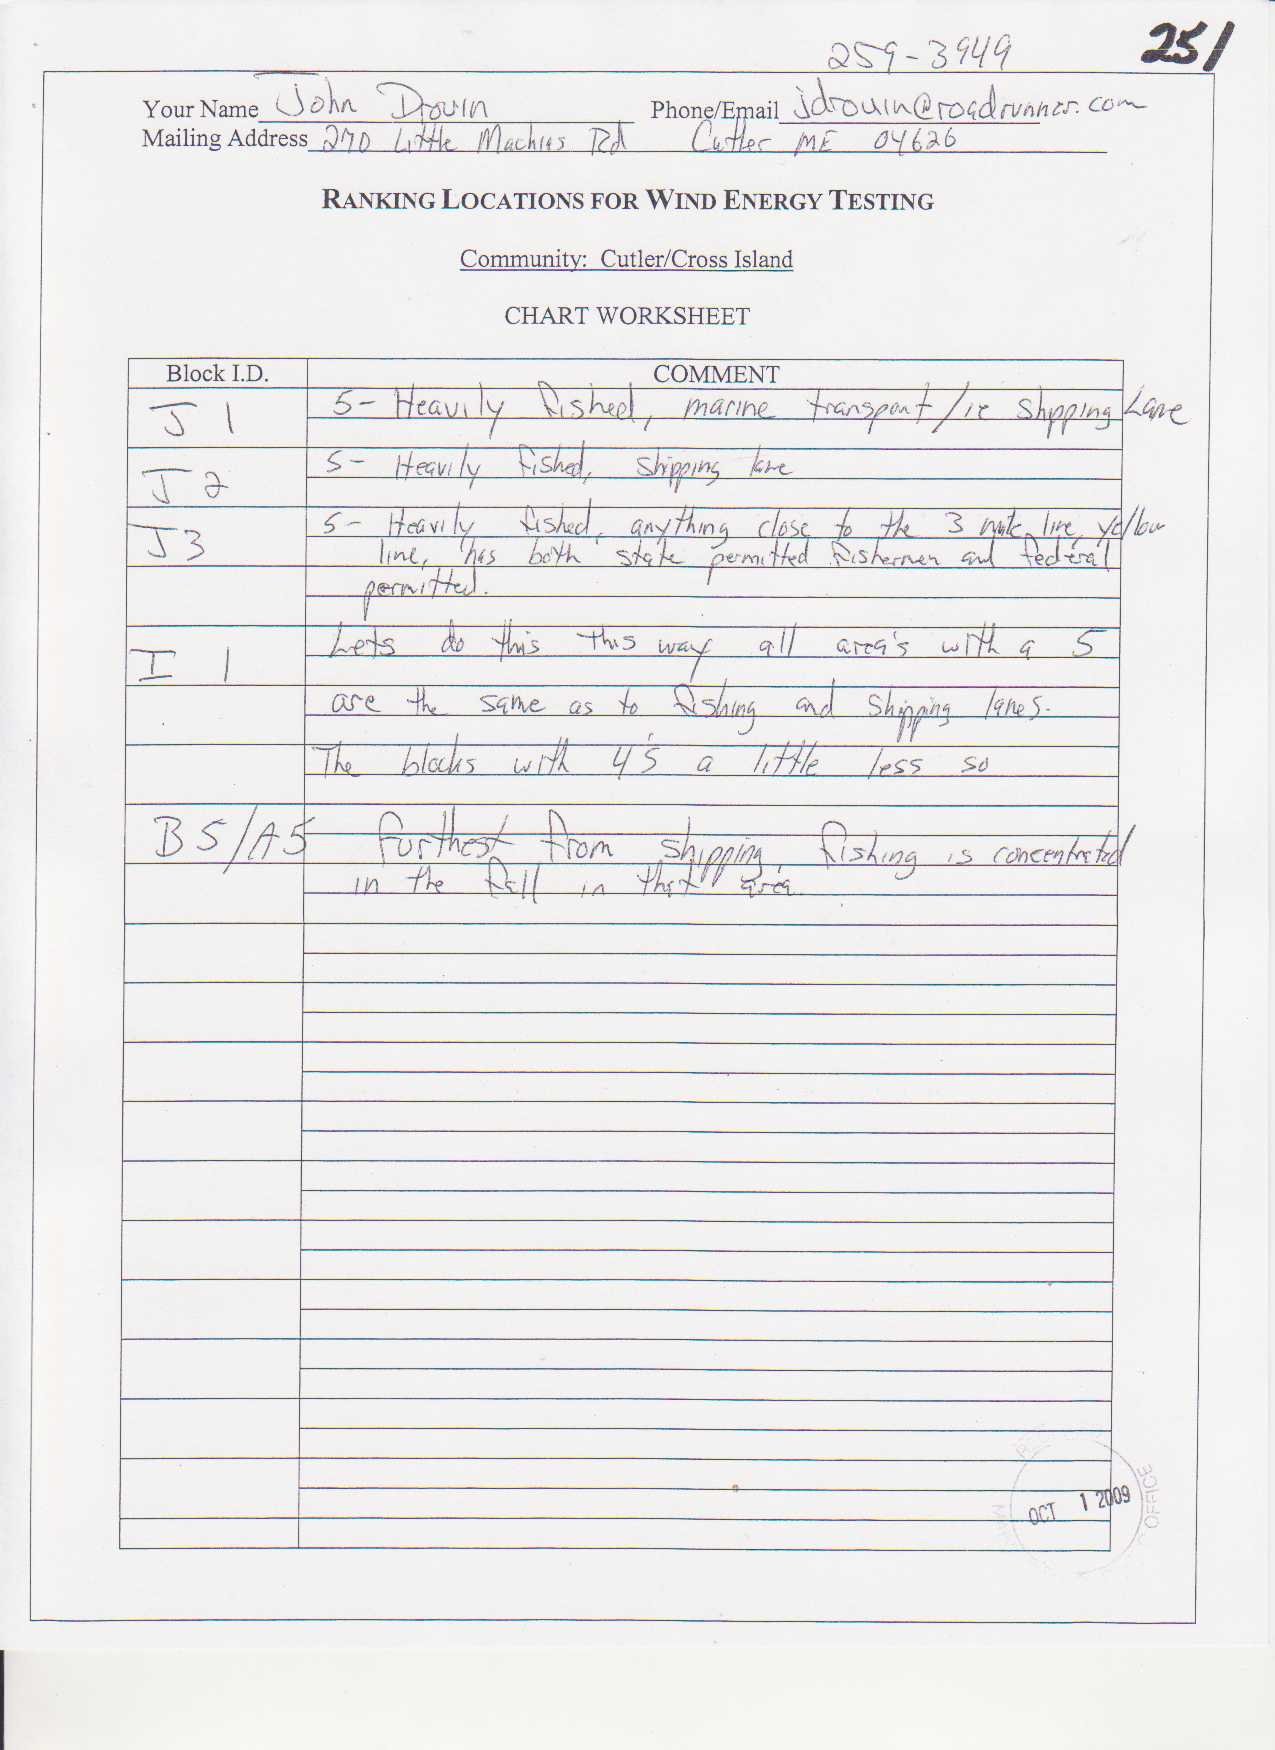 259-3949 251
Your Name John Drouin Phone/Email jdrouin@roadrunner.com
Mailing Address 270 Little Machias Rd Cutler ME 04626
RANKING LOCATIONS FOR WIND ENERGY TESTING
Community: Cutler/Cross Island
CHART WORKSHEET
Block I.D. COMMENT
J 1 5- Heavily fished, marine transport/ie Shipping Lane
J 2 5- Heavily fished, Shipping lane
J3 5- Heavily fished, anything close to the 3 mile line, yellow
line, has both state permitted fishermen and federal
permitted.
I 1 Lets do this this way all area's with a 5
are the same as to fishing and Shipping lanes.
The blocks with 4's a little less so
B5/A5 furthest from shipping, fishing is concentrated
in the fall in that area.
OCT 1 2009
OFFICE